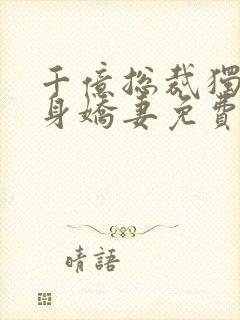 千億總裁獨
身嬌妻免費
晴語